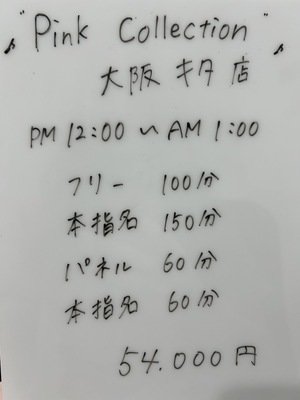 "Pink Collection"
大阪キタ店
PM 12:00 〜 AM 1:00
フリー 100分
本指名 150分
パネル 60分
本指名 60分
54.000円